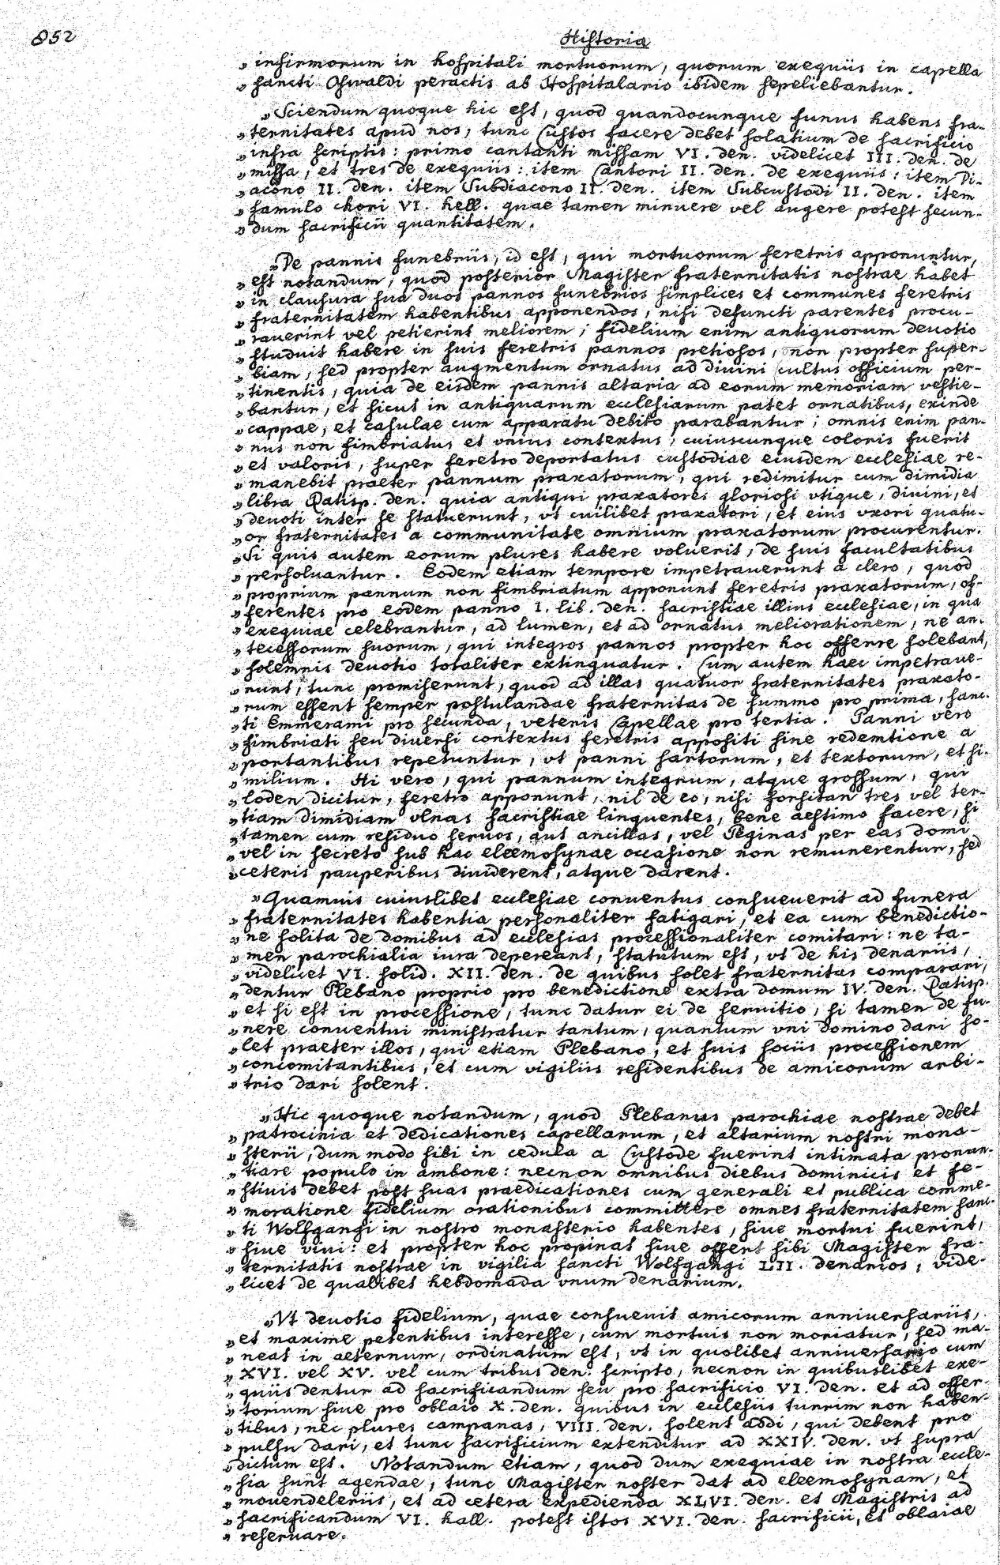 852
Historia
„ infirmorum in hospitali mortuorum, quorum exequiis in capella
„ sancti Oswaldi peractis ab Hospitalario ibidem sepeliebantur.
„Sciendum quoque hic est, quod quandocunque funus habens fra-
„ ternitates apud nos, tunc Custos facere debet solatium de sacrificio
„ infra scriptis: primo cantanti missam VI. den. videlicet III. den. de
„ missa, et tres de exequiis: item Cantori II. den. de exequiis: item Di-
„ acono II. den. item Subdiacono II. den. item Subcustodi II. den. item
„ famulo chori VI. hell. quae tamen minuere vel augere potest secun-
„ dum sacrificii quantitatem.
„De pannis funebriis, id est, qui mortuorum feretris apponuntur,
„ est notandum, quod posterior Magister fraternitatis nostrae habet
„ in clausura sua duos pannos funebrios simplices et communes feretris
„ fraternitatem habentibus apponendos, nisi defuncti parentes procu-
„ rauerint vel petierint meliorem; fidelium enim antiquorum deuotio
„ studuit habere in suis feretris pannos pretiosos, non propter super-
„ biam, sed propter augmentum ornatus ad divini cultus officium per-
„ tinentis, quia de eisdem pannis altaria ad eorum memoriam vestie-
„ bantur, et sicut in antiquarum ecclesiarum patet ornatibus, exinde
„ cappae, et casulae cum apparatu debito parabantur; omnis enim pan-
„ nus non fimbriatus et vnius contextus, cuiuscunque coloris fuerit
„ et valoris, super feretro deportatus custodiae eiusdem ecclesiae re-
„ manebit praeter pannum praxatorum, qui redimitur cum dimidia
„ libra Ratisp. den. quia antiqui praxatores gloriosi vtique, diuini, et
„ deuoti inter se statuerunt, vt cuilibet praxatori, et eius vxori quatu-
„ or fraternitates a communitate omnium praxatorum procurentur.
„ Si quis autem eorum plures habere voluerit, de suis facultatibus
„ persoluantur. Eodem etiam tempore impetrauerunt a clero, quod
„ proprium pannum non fimbriatum apponunt feretris praxatorum, of-
„ ferentes pro eodem panno I. lib. den. sacristiae illius ecclesiae, in qua
„ exequiae celebrantur, ad lumen, et ad ornatus meliorationem, ne an-
„ tecessorum suorum, qui integros pannos propter hoc offerre solebant,
„ solemnis deuotio totaliter extinguatur. Cum autem haec impetraue-
„ runt, tunc promiserunt, quod ad illas quatuor fraternitates praxato-
„ rum essent semper postulandae fraternitas de summo pro prima, sanc-
„ ti Emmerami pro secunda, veteris Capellae pro tertia. Panni vero
„ fimbriati seu diuersi contextus feretris appositi sine redemtione a
„ portantibus repetuntur, vt panni sartorum, et textorum, et si-
„ milium. Hi vero, qui pannum integrum, atque grossum, qui
„ loden dicitur, feretro apponunt, nil de eo, nisi forsitan tres vel ter-
„ tiam dimidiam vlnas sacristiae linquentes, bene aestimo facere, si
„ tamen cum residuo seruos, aut ancillas, vel Peginas per eas domi
„ vel in secreto sub hac eleemosynae occasione non remunerentur, sed
„ ceteris pauperibus diuiderent, atque darent.
„Quamuis cuiuslibet ecclesiae conuentus consueuerit ad funera
„ fraternitates habentia personaliter fatigari, et ea cum benedictio-
„ ne solita de domibus ad ecclesias processionaliter comitari: ne ta-
„ men parochialia iura depereant, statutum est, vt de his denariis,
„ videlicet VI. solid. XII. den. de quibus solet fraternitas comparari,
„ dentur Plebano proprio pro benedictione extra domum IV. den. Ratisp.
„ et si est in processione, tunc datur ei de seruitio, si tamen de fu-
„ nere conuentui ministratur tantum, quantum vni domino dari so-
„ let praeter illos, qui etiam Plebano, et suis sociis processionem
„ concomitantibus, et cum vigiliis residentibus de amicorum arbi-
„ trio dari solent.
„Hic quoque notandum, quod Plebanus parochiae nostrae debet
„ patrocinia et dedicationes capellarum, et altarium nostri mona-
„ sterii, dum modo sibi in cedula a Custode fuerint intimata pronun-
„ tiare populo in ambone: necnon omnibus diebus dominicis et fe-
„ stiuis debet post suas praedicationes cum generali et publica comme-
„ moratione fidelium orationibus committere omnes fraternitatem sanc-
„ ti Wolfgangi in nostro monasterio habentes, siue mortui fuerint,
„ siue viui: et propter hoc propinat siue offert sibi Magister fra-
„ ternitatis nostrae in vigilia sancti Wolfgangi LII. denarios, vide-
„ licet de qualibet hebdomada vnum denarium.
„Vt deuotio fidelium, quae consueuit amicorum anniuersariis,
„ et maxime petentibus interesse, cum mortuis non moriatur, sed ma-
„ neat in aeternum, ordinatum est, vt in quolibet anniuersario cum
„ XVI. vel XV. vel cum tribus den. scripto, necnon in quibuslibet exe-
„ quiis dentur ad sacrificandum seu pro sacrificio VI. den. et ad offer-
„ torium siue pro oblaio X. den. quibus in ecclesiis turrim non haben-
„ tibus, nec plures campanas, VIII. den. solent addi, qui debent pro
„ pulsu dari, et tunc sacrificium extenditur ad XXIV. den. vt supra
„ dictum est. Notandum etiam, quod dum exequiae in nostra eccle-
„ sia sunt agendae, tunc Magister noster dat ad eleemosynam, et
„ mouendeleriis, et ad cetera expedienda XLVI. den. et Magistris ad
„ sacrificandum VI. hall. potest istos XVI. den. sacrificii, et oblaiae
„ reseruare.